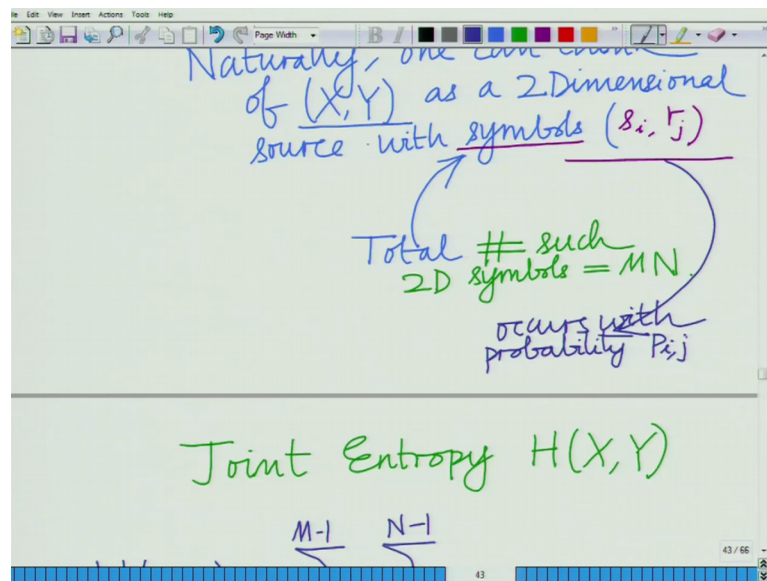 File Edit View Insert Actions Tools Help
Page Width
B I
Naturally, one can think
of (X,Y) as a 2Dimensional
source with symbols (si, rj)
Total # such
2D symbols = MN.
occurs with
probability Pi,j
Joint Entropy H(X,Y)
M-1 N-1
43 / 66
43